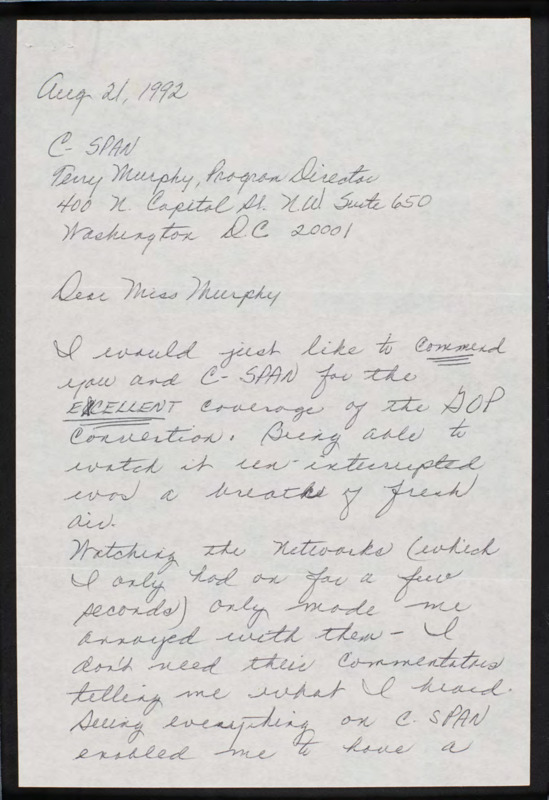 Aug 21, 1992
C-SPAN
Terry Murphy, Program Director
400 N. Capital St. N.W. Suite 650
Washington D.C. 20001
Dear Miss Murphy
I would just like to commend
you and C-SPAN for the
EXCELLENT coverage of the GOP
Convention. Being able to
watch it un-interrupted
was a breath of fresh
air.
Watching the networks (which
I only had on for a few
seconds) only made me
annoyed with them - I
don't need their commentators
telling me what I heard.
Seeing everything on C-SPAN
enabled me to have a